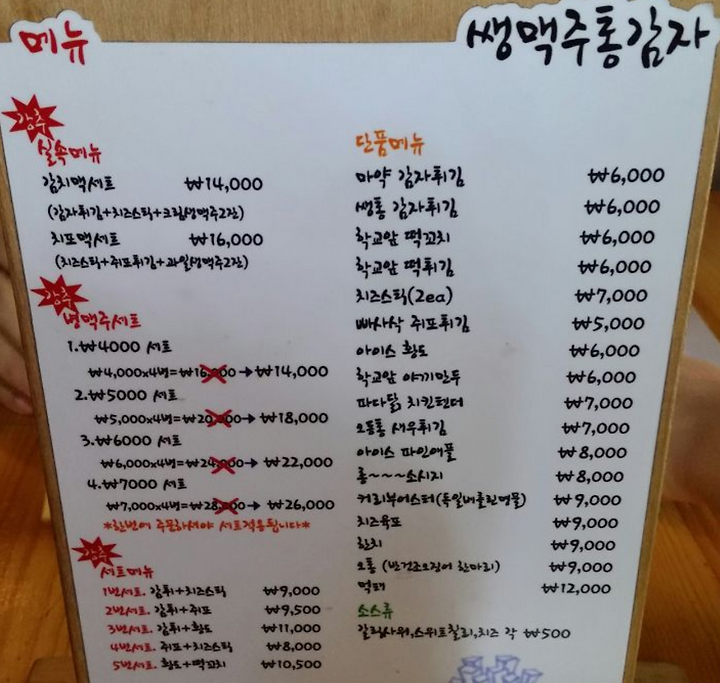 메뉴
쌩맥주통감자
강추
실속메뉴
감치맥세트 ₩14,000
(감자튀김+치즈스틱+크림생맥주2잔)
치포맥세트 ₩16,000
(치즈스틱+쥐포튀김+과일생맥주2잔)
강추
병맥주세트
1.₩4000 세트
₩4,000x4병=₩16,000→₩14,000
2.₩5000 세트
₩5,000x4병=₩20,000→₩18,000
3.₩6000 세트
₩6,000x4병=₩24,000→₩22,000
4.₩7000 세트
₩7,000x4병=₩28,000→₩26,000
*한번에 주문하셔야 세트적용됩니다*
강추
세트메뉴
1번세트. 감튀+치즈스틱 ₩9,000
2번세트. 감튀+쥐포 ₩9,500
3번세트. 감튀+황도 ₩11,000
4번세트. 쥐포+치즈스틱 ₩8,000
5번세트. 황도+떡꼬치 ₩10,500
단품메뉴
마약 감자튀김 ₩6,000
쌩통 감자튀김 ₩6,000
학교앞 떡꼬치 ₩6,000
학교앞 떡튀김 ₩6,000
치즈스틱(2ea) ₩7,000
빠사삭 쥐포튀김 ₩5,000
아이스 황도 ₩6,000
학교앞 야끼만두 ₩6,000
파다닭 치킨텐더 ₩7,000
오동통 새우튀김 ₩7,000
아이스 파인애플 ₩8,000
롱~~~소시지 ₩8,000
커리부어스터(독일베를린명물) ₩9,000
치즈육포 ₩9,000
한치 ₩9,000
오통 (반건조오징어 한마리) ₩9,000
먹태 ₩12,000
소스류
갈릭사워,스위트칠리,치즈 각 ₩500